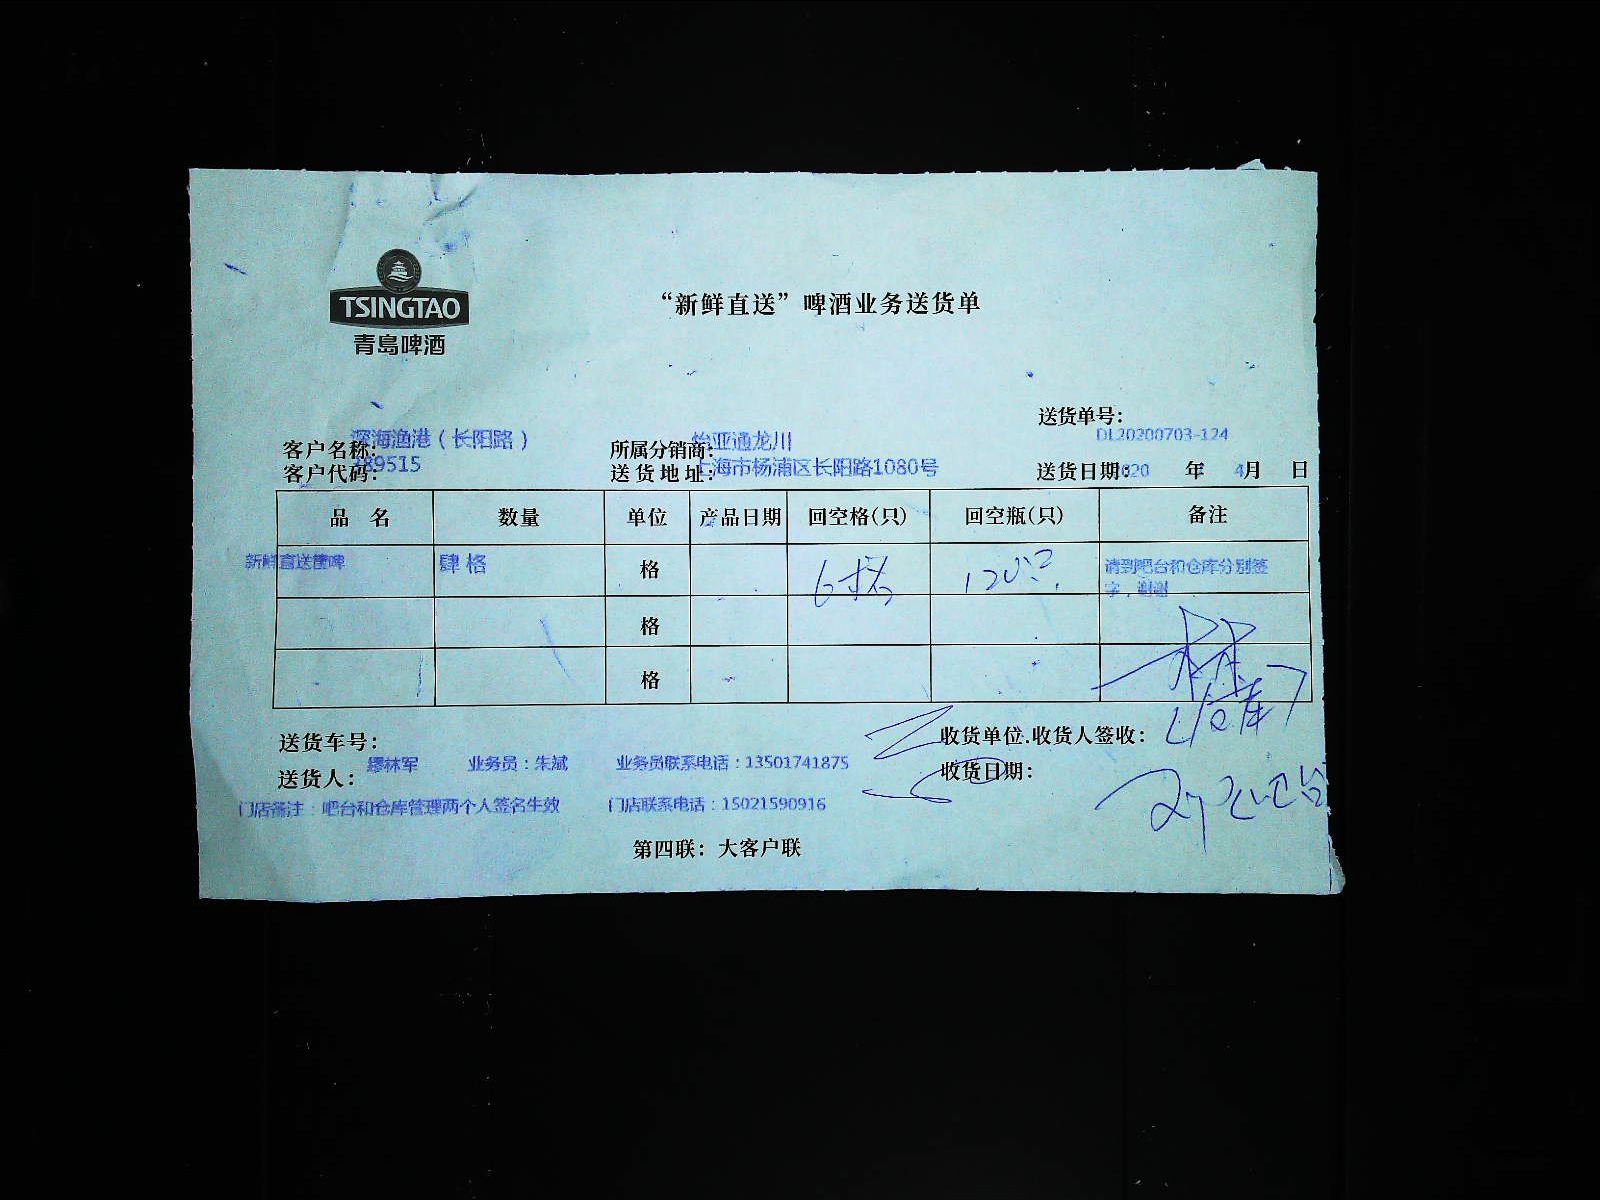 TSINGTAO
青島啤酒
“新鲜直送”啤酒业务送货单
送货单号：
DL20200703-124
客户名称： 深海渔港（长阳路） 所属分销商： 怡亚通龙川
客户代码： 489515 送货地址： 上海市杨浦区长阳路1080号 送货日期： 2020 年 4月 日
品 名 数量 单位 产品日期 回空格(只) 回空瓶(只) 备注
新鲜直送 肆格 格 6格 120只 请到吧台和仓库分别签字，谢谢
格
格
仓库
送货车号： 收货单位.收货人签收：
送货人： 缪林军 业务员：朱斌 业务员联系电话：13501741875 收货日期：
吧台
门店备注：吧台和仓库管理两个人签名生效 门店联系电话：15021590916
第四联：大客户联